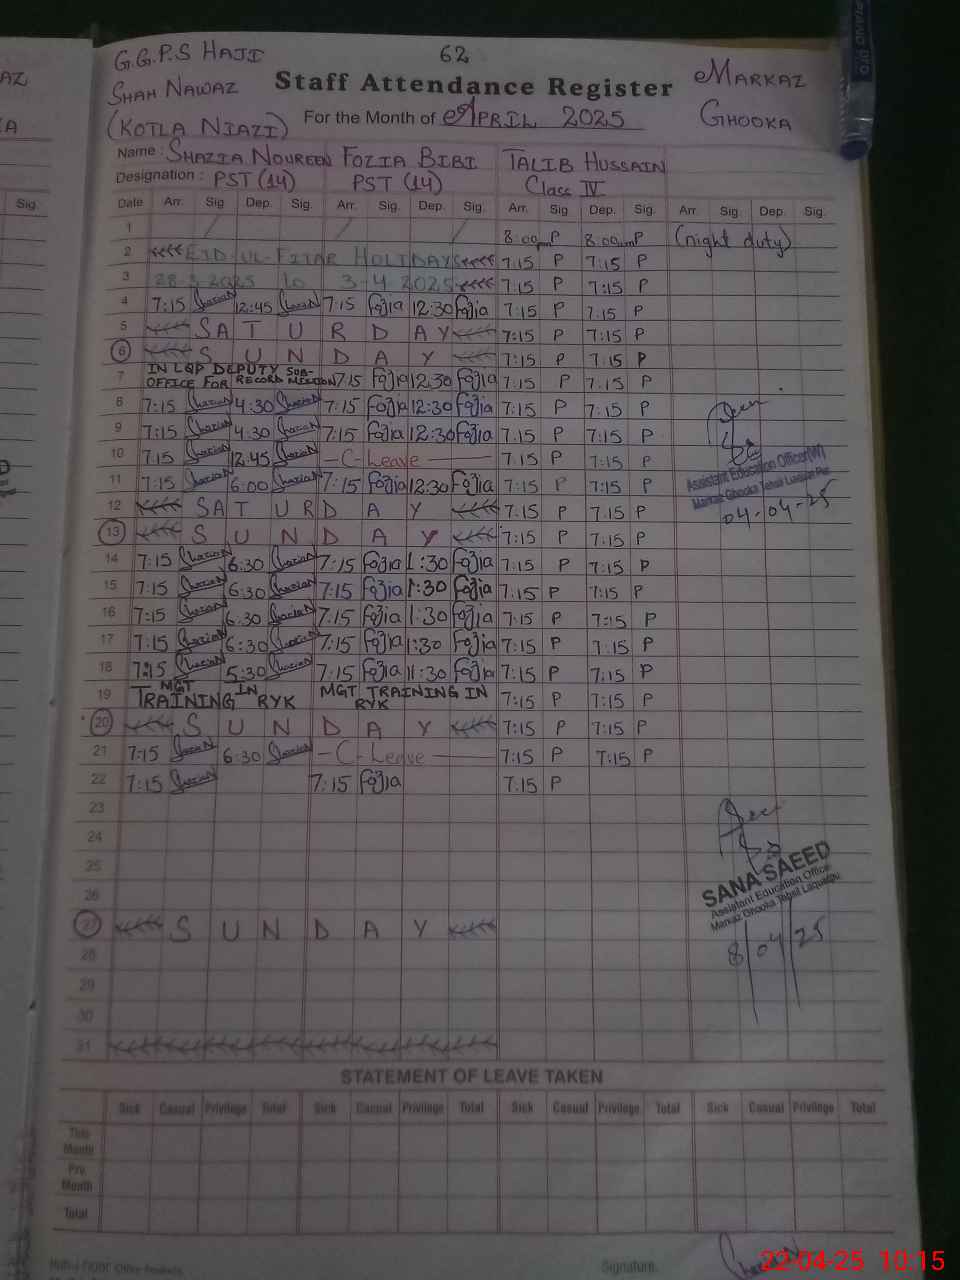 G.G.P.S HAJI
SHAH NAWAZ
(KOTLA NIAZI)
62
Staff Attendance Register
For the Month of APRIL 2025
MARKAZ
GHOOKA
Name : SHAZIA NOUREEN FOZIA BIBI TALIB HUSSAIN
Designation : PST (14) PST (14) Class IV
Date Arr. Sig. Dep. Sig. Arr. Sig. Dep. Sig. Arr. Sig. Dep. Sig. Arr. Sig. Dep. Sig.
1 8:00pm P 8:00am P (night duty)
2 EID-UL-FITAR HOLIDAYS 7:15 P 7:15 P
3 28-3-2025 to 3-4-2025 7:15 P 7:15 P
4 7:15 Shazian 12:45 Shazian 7:15 Fozia 12:30 Fozia 7:15 P 7:15 P
5 SATURDAY 7:15 P 7:15 P
6 SUNDAY 7:15 P 7:15 P
7 IN DEPUTY OFFICE FOR RECORD 7:15 Fozia 12:30 Fozia 7:15 P 7:15 P
8 7:15 Shazian 4:30 Shazian 7:15 Fozia 12:30 Fozia 7:15 P 7:15 P
9 7:15 Shazian 4:30 Shazian 7:15 Fozia 12:30 Fozia 7:15 P 7:15 P
10 7:15 Shazian 12:45 Shazian - C - Leave 7:15 P 7:15 P
11 7:15 Shazian 6:00 Shazian 7:15 Fozia 12:30 Fozia 7:15 P 7:15 P
12 SATURDAY 7:15 P 7:15 P
13 SUNDAY 7:15 P 7:15 P
14 7:15 Shazian 6:30 Shazian 7:15 Fozia 1:30 Fozia 7:15 P 7:15 P
15 7:15 Shazian 6:30 Shazian 7:15 Fozia 1:30 Fozia 7:15 P 7:15 P
16 7:15 Shazian 6:30 Shazian 7:15 Fozia 1:30 Fozia 7:15 P 7:15 P
17 7:15 Shazian 6:30 Shazian 7:15 Fozia 1:30 Fozia 7:15 P 7:15 P
18 7:15 Shazian 5:30 Shazian 7:15 Fozia 11:30 Fozia 7:15 P 7:15 P
19 MGT TRAINING IN RYK MGT TRAINING IN RYK 7:15 P 7:15 P
20 SUNDAY 7:15 P 7:15 P
21 7:15 Shazian 6:30 Shazian - C - Leave 7:15 P 7:15 P
22 7:15 Shazian 7:15 Fozia 7:15 P
23
24
25
26
27 SUNDAY
28
29
30
31
Assistant Education Officer(W)
Markaz Ghooka Tehsil
04-04-25
SANA SAEED
Assistant Education Officer
Markaz Ghooka Tehsil
8/04/25
STATEMENT OF LEAVE TAKEN
Sick Casual Privilege Total Sick Casual Privilege Total Sick Casual Privilege Total Sick Casual Privilege Total
This Month
Pre. Month
Total
Signature.
22-04-25 10:15